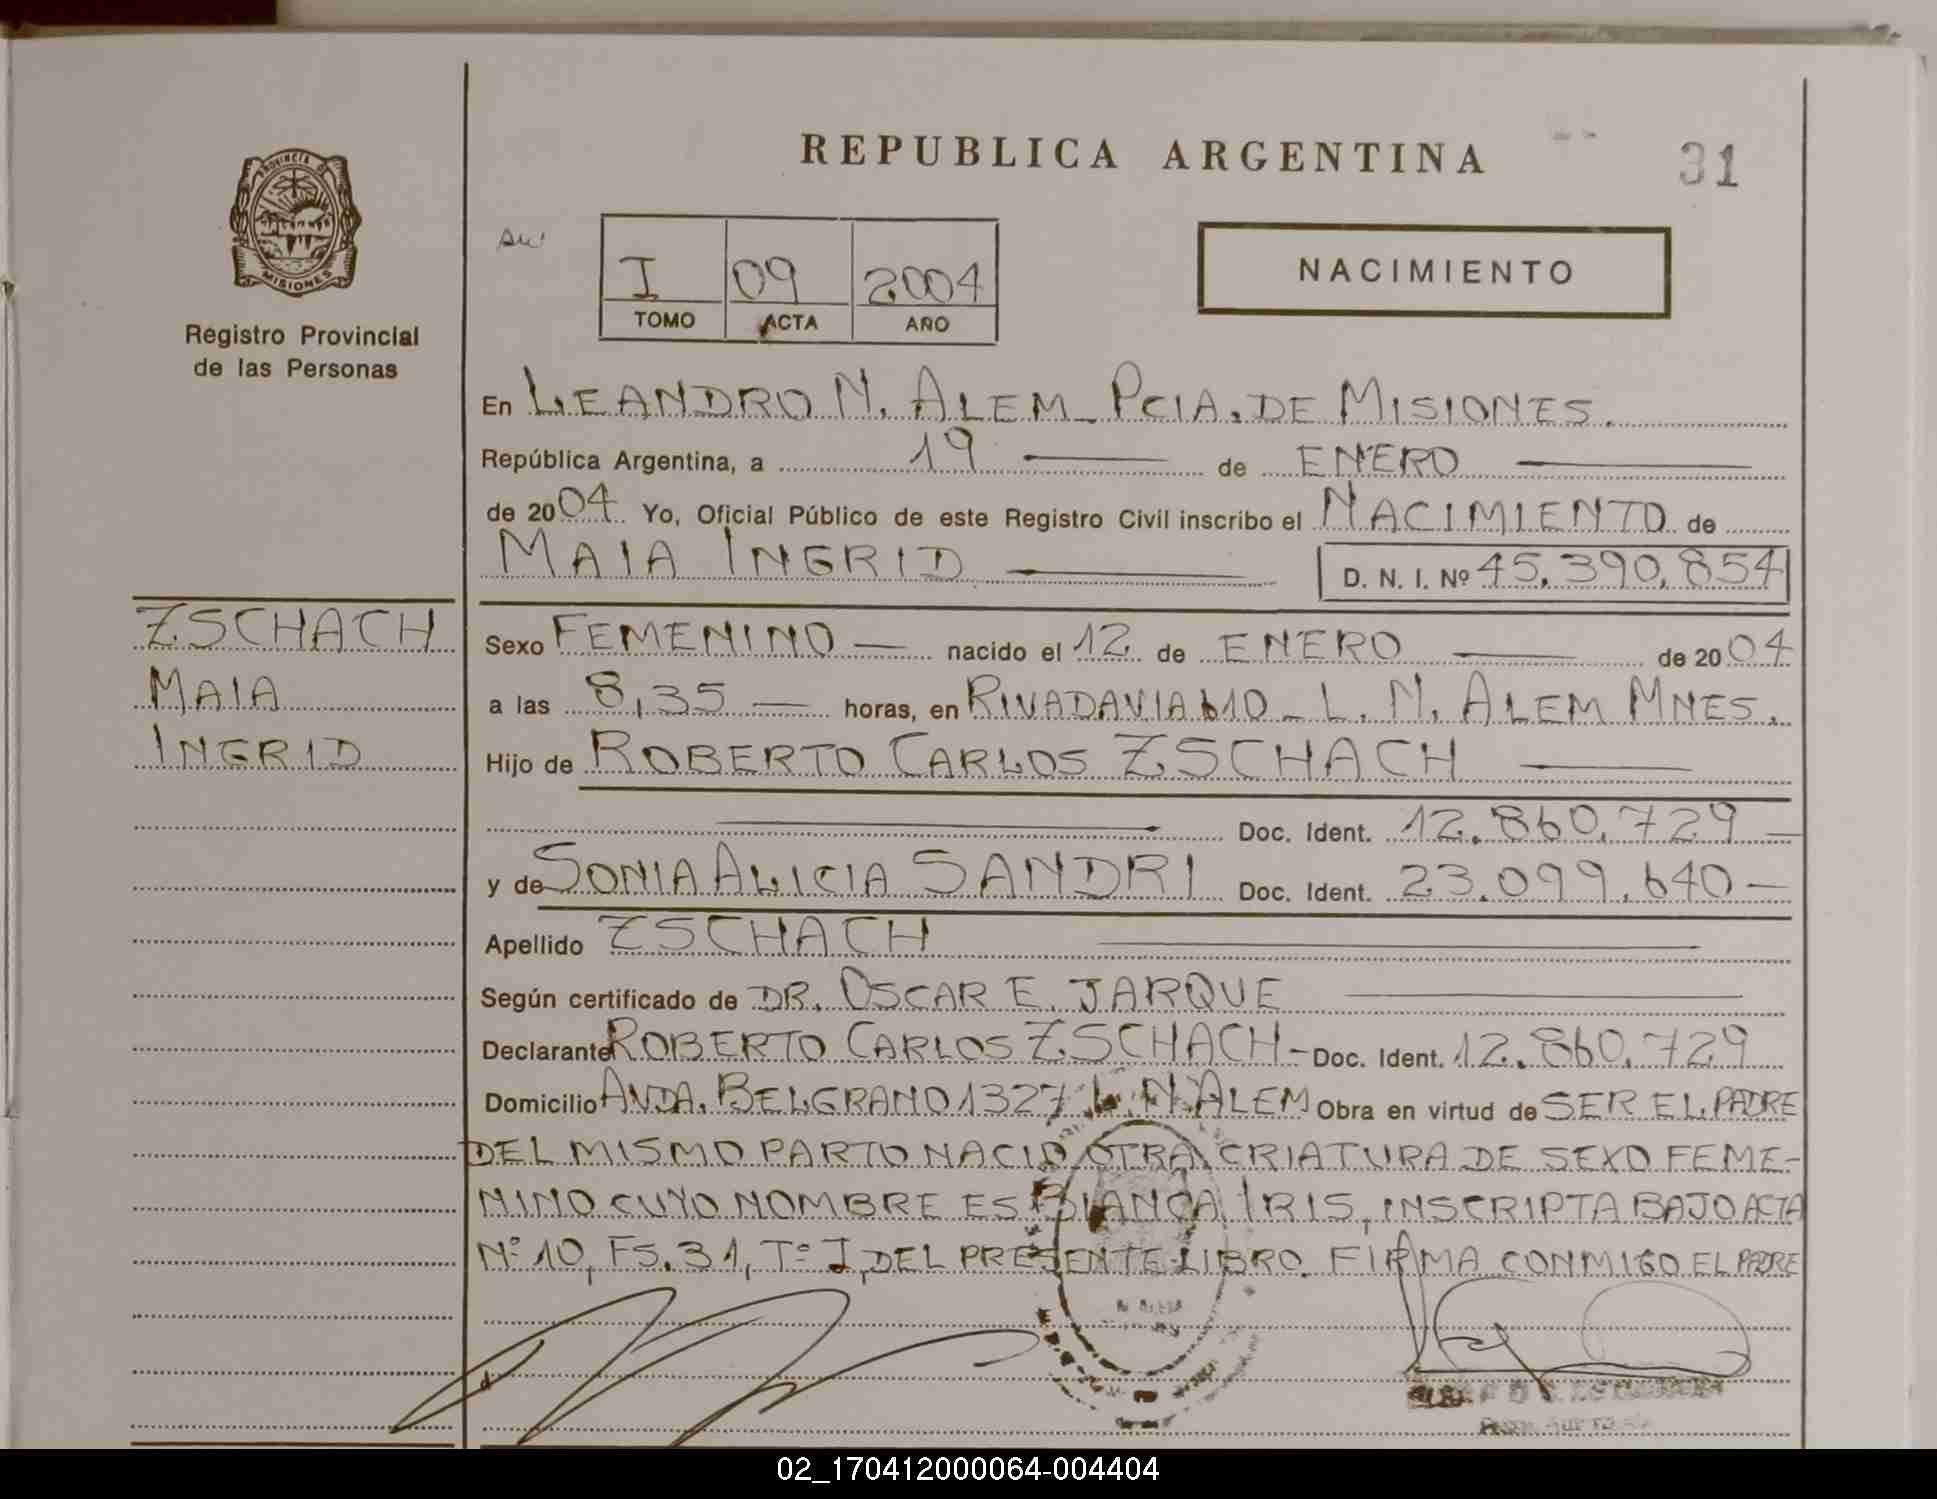 REPUBLICA ARGENTINA
31
PROVINCIA DE
MISIONES
Registro Provincial
de las Personas
I 09 2004
TOMO ACTA AÑO
NACIMIENTO
En LEANDRO N. ALEM - PCIA. DE MISIONES.
República Argentina, a 19 de ENERO
de 2004. Yo, Oficial Público de este Registro Civil inscribo el NACIMIENTO de
MAIA INGRID
D. N. I. Nº 45.390.854
ZSCHACH
MAIA
INGRID
Sexo FEMENINO nacido el 12 de ENERO de 2004
a las 8,35 horas, en RIVADAVIA 610 - L. N. ALEM MNES.
Hijo de ROBERTO CARLOS ZSCHACH
Doc. Ident. 12.860.729
y de SONIA ALICIA SANDRI Doc. Ident. 23.099.640
Apellido ZSCHACH
Según certificado de DR. OSCAR E. JARQUE
Declarante ROBERTO CARLOS ZSCHACH - Doc. Ident. 12.860.729
Domicilio AVDA. BELGRANO 1327 L. N. ALEM Obra en virtud de SER EL PADRE
DEL MISMO PARTO NACIO OTRA CRIATURA DE SEXO FEME-
NINO CUYO NOMBRE ES BIANCA IRIS, INSCRIPTA BAJO ACTA
Nº 10, FS. 31, Tº I, DEL PRESENTE LIBRO. FIRMA CONMIGO EL PADRE
02_170412000064-004404